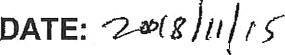 DATE: 2018/11/15